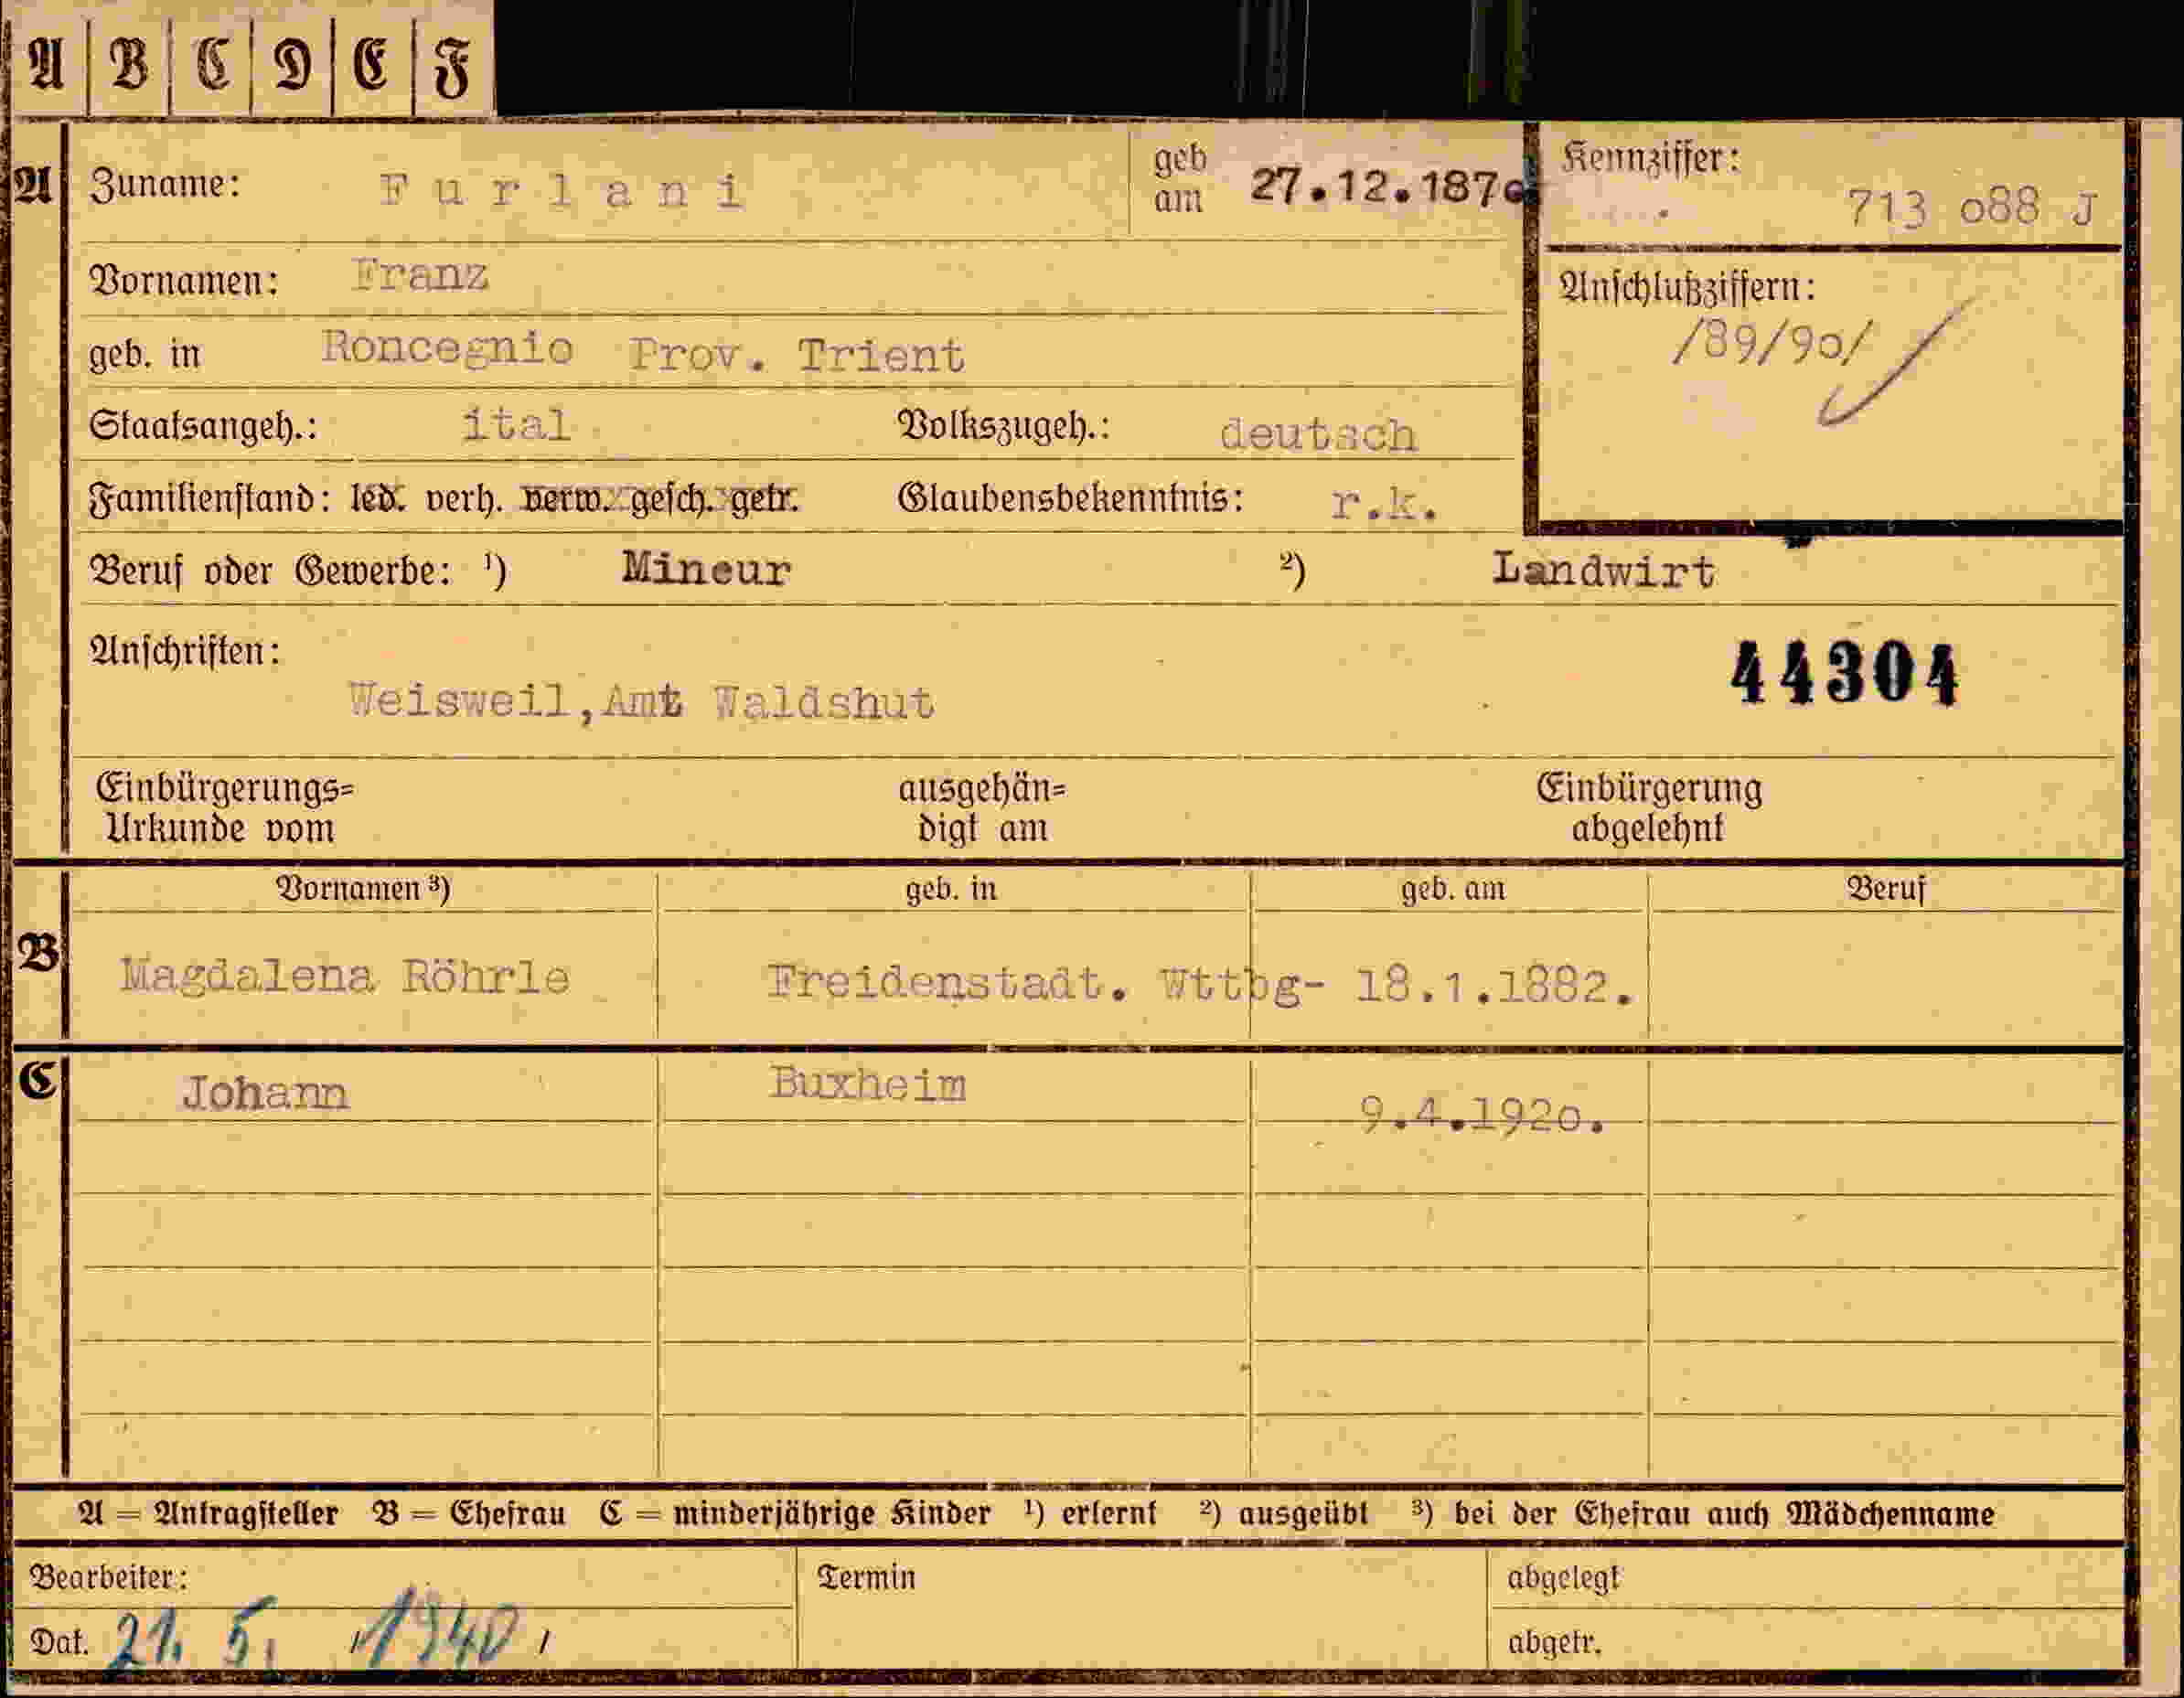 A B C D E F
A Zuname: Furlani geb am 27.12.187o Kennziffer: 713 o88 J
Vornamen: Franz
Anschlußziffern: /89/9o/
geb. in Roncegnio Prov. Trient
Staatsangeh.: ital Volkszugeh.: deutsch
Familienstand: led. verh. verw. gesch. getr. Glaubensbekenntnis: r.k.
Beruf oder Gewerbe: ¹) Mineur ²) Landwirt
Anschriften:
44304
Weisweil, Amt Waldshut
Einbürgerungs= ausgehän= Einbürgerung
Urkunde vom digt am abgelehnt
Vornamen ³) geb. in geb. am Beruf
B Magdalena Röhrle Freidenstadt. Wttbg- 18.1.1882.
C Johann Buxheim 9.4.192o.
A = Antragsteller B = Ehefrau C = minderjährige Kinder ¹) erlernt ²) ausgeübt ³) bei der Ehefrau auch Mädchenname
Bearbeiter: Termin abgelegt
Dat. 21. 5. 1940 abgetr.